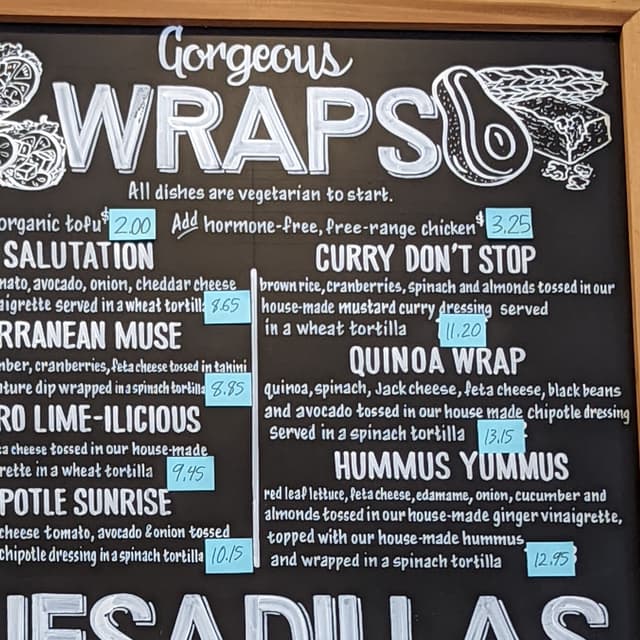 Gorgeous
WRAPS
All dishes are vegetarian to start.
organic tofu $2.00 Add hormone-free, free-range chicken $3.25
SALUTATION
avocado, onion, cheddar cheese
served in a wheat tortilla 8.65
MUSE
cranberries, feta cheese tossed in tahini
dip wrapped in a spinach tortilla 8.85
LIME-ILICIOUS
cheese tossed in our house-made
in a wheat tortilla 9.45
SUNRISE
cheese tomato, avocado & onion tossed
chipotle dressing in a spinach tortilla 10.15
CURRY DON'T STOP
brown rice, cranberries, spinach and almonds tossed in our
house-made mustard curry dressing served
in a wheat tortilla 11.20
QUINOA WRAP
quinoa, spinach, Jack cheese, feta cheese, black beans
and avocado tossed in our house made chipotle dressing
served in a spinach tortilla 13.15
HUMMUS YUMMUS
red leaf lettuce, feta cheese, edamame, onion, cucumber and
almonds tossed in our house-made ginger vinaigrette,
topped with our house-made hummus
and wrapped in a spinach tortilla 12.95